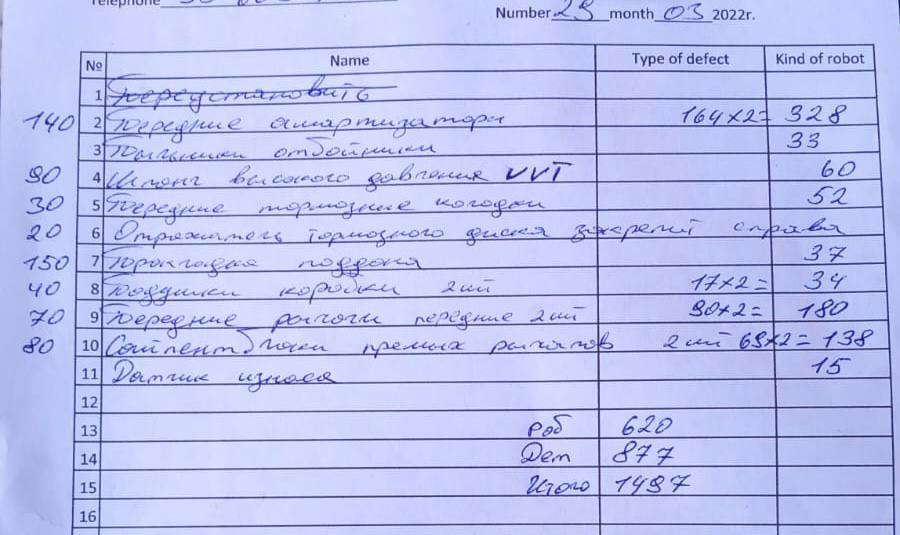 Telephone
Number 29 month 03 2022г.
№ Name Type of defect Kind of robot
1 Переустановить
140 2 Передние амартизаторы 164x2= 328
3 Пыльники отбойники 33
90 4 Шланг высокого давления VVT 60
30 5 Передние тормозные колодки 52
20 6 Отражатель тормозного диска закрепит справа
150 7 Прокладка поддона 37
40 8 Подушки коробки 2шт 17x2= 34
70 9 Передние рычаги передние 2шт 90x2= 180
80 10 Сайлентблоки прямых рычагов 2шт 69x2= 138
11 Датчик износа 15
12
13 Роб 620
14 Дет 877
15 Итого 1497
16